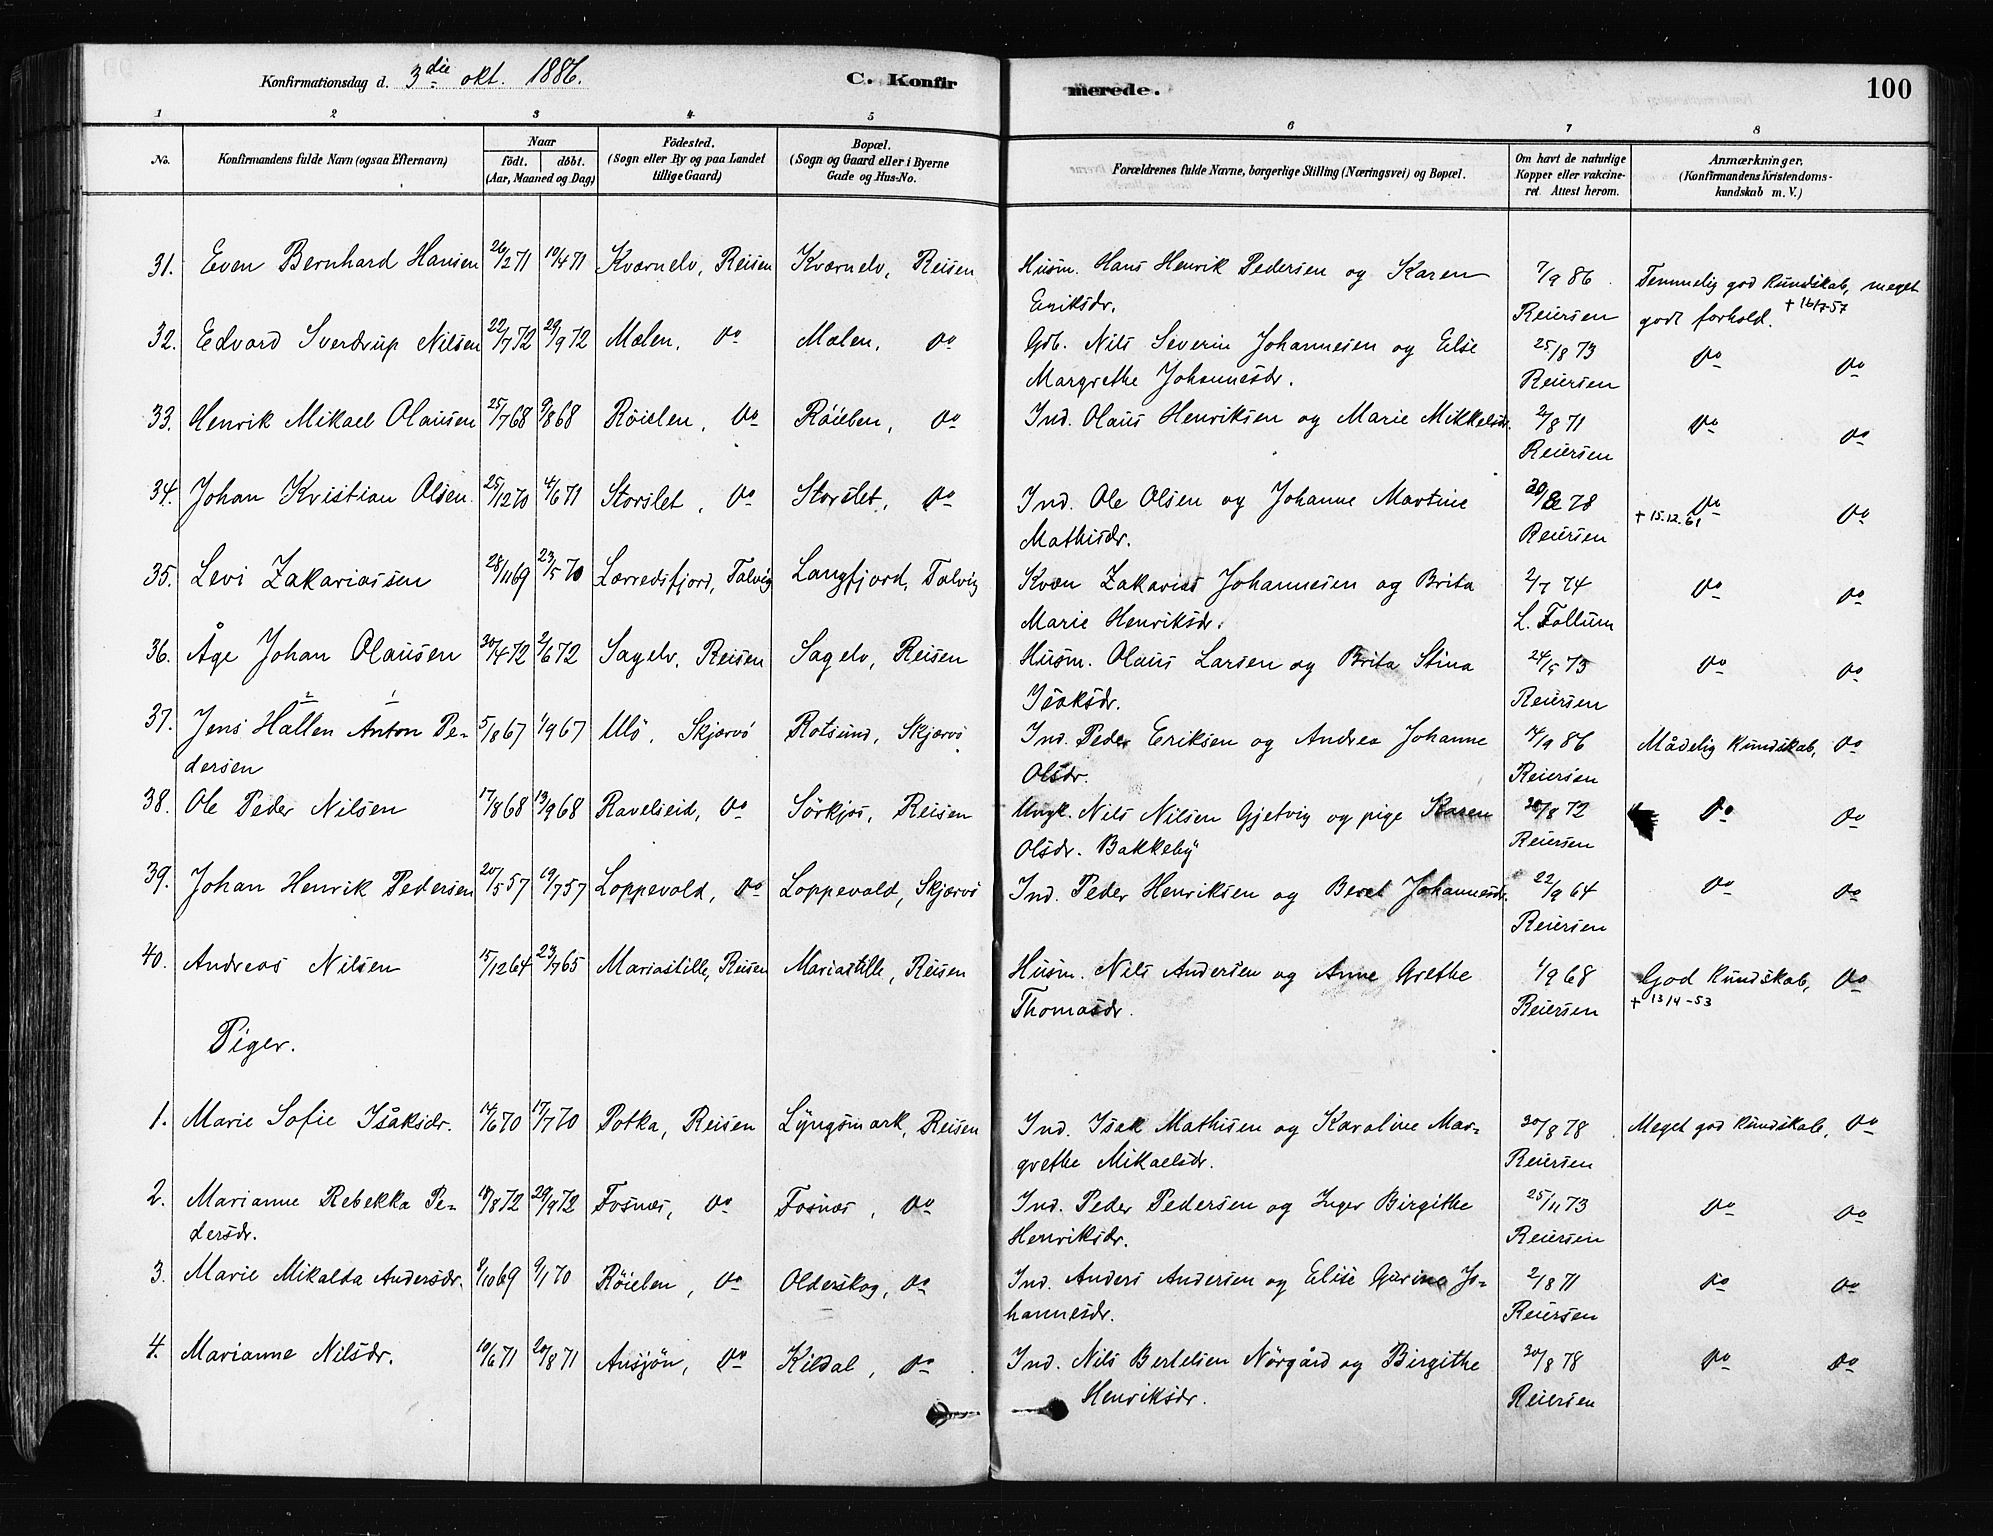 Konfirmationsdag d. 3die okt. 1886.
C. Konfir merede. 100
1 2 3 4 5 6 7 8
No. Konfirmandens fulde Navn (ogsaa Efternavn) Naar födt. döbt. (Aar, Maaned og Dag) Födested. (Sogn eller By og paa Landet tillige Gaard) Bopæl. (Sogn og Gaard eller i Byerne Gade og Hus-No. Forældrenes fulde Navne, borgerlige Stilling (Næringsvei) og Bopæl. Om havt de naturlige Kopper eller vakcineret. Attest herom. Anmærkninger. (Konfirmandens Kristendomskundskab m. V.)
31. Even Bernhard Hansen 26/2 71 10/4 71 Kværnelv, Reisen Kværnelv, Reisen Husm. Hans Henrik Pedersen og Karen 7/9 86 Temmelig god kundskab, meget
Eriksdr. Reiersen godt forhold. + 16/7-57
32. Edvard Sverdrup Nilsen 22/7 72 29/9 72 Mælen, do Mælen, do Gdb. Nils Severin Johannesen og Else 25/8 73 do do
Margrethe Johannesdr. Reiersen
33. Henrik Mikael Olausen 25/7 68 9/8 68 Röielen, do Röielen, do Ind. Olaus Henriksen og Marie Mikkelsdr. 2/8 71 do do
Reiersen
34. Johan Kristian Olsen 25/12 70 4/6 71 Storslet, do Storslet, do Ind. Ole Olsen og Johanne Martine 30/8 78 do do
Mathisdr. Reiersen + 15.12.61
35. Levi Zakariassen 28/11 69 23/5 70 Lærredsfjord, Talvig Langfjord, Talvig Kvæn Zakarias Johannesen og Brita 2/7 74 do do
Marie Henriksdr. L. Follum
36. Åge Johan Olausen 30/4 72 2/6 72 Sagelv, Reisen Sagelv, Reisen Husm. Olaus Larsen og Brita Stina 24/5 73 do do
Isaksdr. Reiersen
2 1
37. Jens Hallen Anton Pe- 5/8 67 1/9 67 Ulö, Skjærvö Rotsund, Skjærvö Ind. Peder Eriksen og Andrea Johanne 14/9 86 Mådelig kundskab, do
dersen Olsdr. Reiersen
38. Ole Peder Nilsen 17/8 68 13/9 68 Ravelseid, do Sörkjos, Reisen Ungk. Nils Nilsen Gjetvig og pige Karen 20/8 72 do do
Olsdr. Bakkeby Reiersen
39. Johan Henrik Pedersen 20/5 57 19/7 57 Loppevold, do Loppevold, Skjærvö Ind. Peder Henriksen og Beret Johannesdr. 22/9 64 do do
Reiersen
40. Andreas Nilsen 15/12 64 23/7 65 Mariastille, Reisen Mariastille, Reisen Husm. Nils Andersen og Anne Grethe 1/9 68 God kundskab, do
Thomasdr. Reiersen + 13/4-53
Piger.
1. Marie Sofie Isaksdr. 14/6 70 17/7 70 Potka, Reisen Lyngsmark, Reisen Ind. Isak Mathisen og Karoline Mar- 30/8 78 Meget god kundskab, do
grethe Mikaelsdr. Reiersen
2. Marianne Rebekka Pe- 18/8 72 29/9 72 Fosnæs, do Fosnæs, do Ind. Peder Pedersen og Inger Birgithe 25/11 73 do do
dersdr. Henriksdr. Reiersen
3. Marie Mikalda Andersdr. 9/10 69 9/1 70 Röielen, do Olderskog, do Ind. Anders Andersen og Elise Gurina Jo- 2/8 71 do do
hannesdr. Reiersen
4. Marianne Nilsdr. 10/6 71 20/8 71 Ansjön, do Kildal, do Ind. Nils Bertelsen Nörgård og Birgithe 30/8 78 do do
Henriksdr. Reiersen